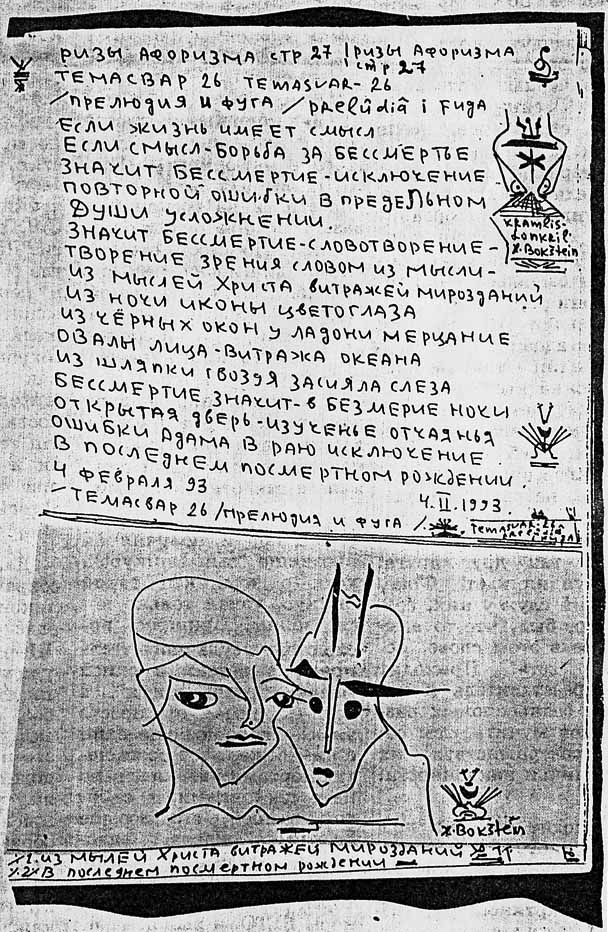 РИЗЫ АФОРИЗМА СТР 27 / РИЗЫ АФОРИЗМА
стр 27
ТЕМАСВАР 26 TEMASVAR-26
/ПРЕЛЮДИЯ И ФУГА / PRELÛDIÂ i FUGA
ЕСЛИ ЖИЗНЬ ИМЕЕТ СМЫСЛ
ЕСЛИ СМЫСЛ-БОРЬБА ЗА БЕССМЕРТЬЕ
ЗНАЧИТ БЕССМЕРТИЕ-ИСКЛЮЧЕНИЕ
ПОВТОРНОЙ ОШИБКИ В ПРЕДЕЛЬНОМ
ДУШИ УСЛОЖНЕНИИ.
ЗНАЧИТ БЕССМЕРТИЕ-СЛОВОТВОРЕНИЕ-
ТВОРЕНИЕ ЗРЕНИЯ СЛОВОМ ИЗ МЫСЛИ-
ИЗ МЫСЛЕЙ ХРИСТА ВИТРАЖЕЙ МИРОЗДАНИЙ
ИЗ НОЧИ ИКОНЫ ЦВЕТОГЛАЗА
ИЗ ЧЁРНЫХ ОКОН У ЛАДОНИ МЕРЦАНИЕ
ОВАЛЫ ЛИЦА-ВИТРАЖА ОКЕАНА
ИЗ ШЛЯПКИ ГВОЗДЯ ЗАСИЯЛА СЛЕЗА
БЕССМЕРТИЕ ЗНАЧИТ-В БЕЗМЕРИЕ НОЧИ
ОТКРЫТАЯ ДВЕРЬ-ИЗУЧЕНЬЕ ОТЧАЯНЬЯ
ОШИБКИ АДАМА В РАЮ ИСКЛЮЧЕНИЕ
В ПОСЛЕДНЕМ ПОСМЕРТНОМ РОЖДЕНИИ.
4 ФЕВРАЛЯ 93
4.II.1993
/ТЕМАСВАР 26 /ПРЕЛЮДИЯ И ФУГА /
TEMASVAR-26
KRAMLIS-
I. BOKSTEIN
I. BOKSTEIN
ИЗ МЫЛЕЙ ХРИСТА ВИТРАЖЕЙ МИРОЗДАНИЙ
В ПОСЛЕДНЕМ ПОСМЕРТНОМ РОЖДЕНИИ